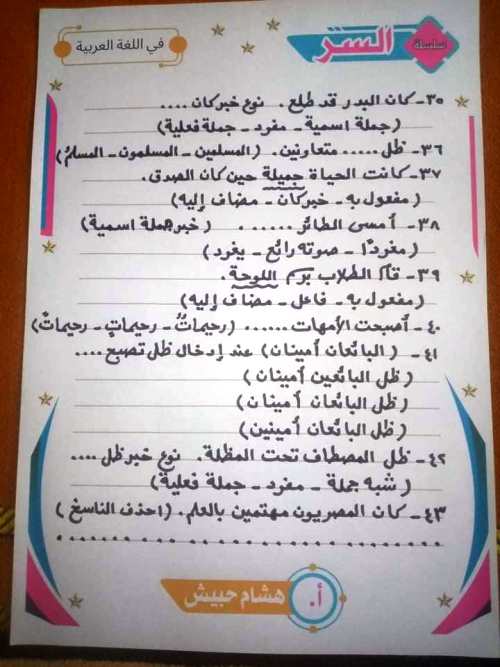 سلسلة السر
في اللغة العربية
٣٥- كان البدر قد طلع . نوع خبر كان ....
(جملة اسمية - مفرد - جملة فعلية)
٣٦- ظل ..... متعاونين. (المسلمين - المسلمون - المسلمُ)
٣٧- كانت الحياة جميلة حين كان الصدق.
(مفعول به - خبر كان - مضاف إليه)
٣٨- أمسى الطائر ...... (خبر جملة اسمية)
(مغردًا - صوته رائع - يغرد)
٣٩- قام الطلاب برسم اللوحة.
(مفعول به - فاعل - مضاف إليه)
٤٠- أصبحت الأمهات ...... (رحيماتُ - رحيماتٍ - رحيماتٌ)
٤١- (البائعان أمينان) عند إدخال ظل تصبح ....
(ظل البائعين أمينان)
(ظل البائعان أمينان)
(ظل البائعان أمينين)
٤٢- ظل المصطاف تحت المظلة. نوع خبر ظل ....
(شبه جملة - مفرد - جملة فعلية)
٤٣- كان المصريون مهتمين بالعلم. (احذف الناسخ)
................................
أ. هشام حبيش